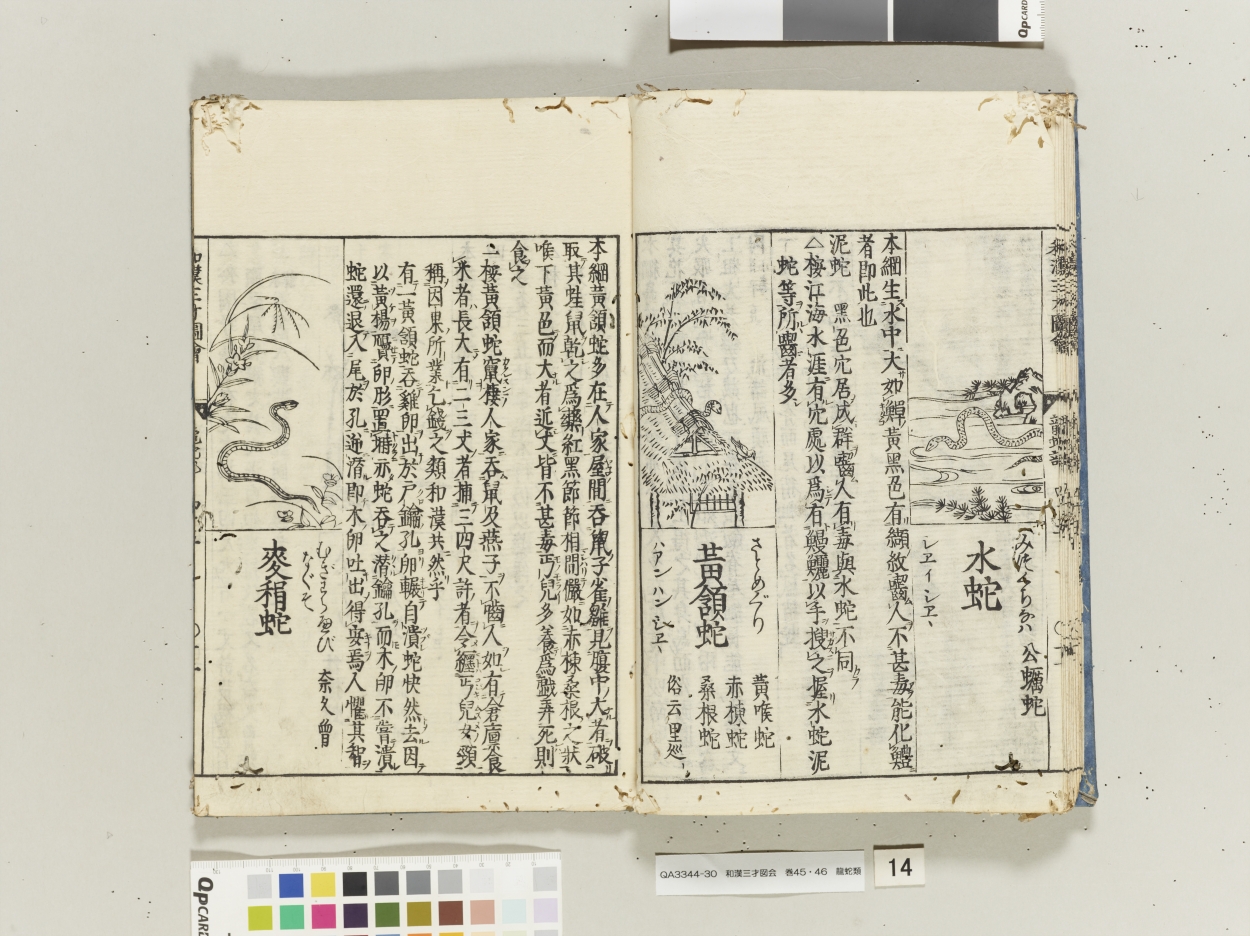 水蛇
公蠣蛇
シヱイシヱヽ
本綱生水中大如鱓黃黑色有纈紋嚙人不甚毒能化鱧
者即此也
泥蛇 黑色穴居成群嚙人有毒與水蛇不同
△按江海水涯有穴處以爲有鰻鱺以手搜之握水蛇泥
蛇等所嚙者多
黃頷蛇
さとめぐり
ハアンハンシヱヽ
黃喉蛇
赤楝蛇
桑根蛇
俗云里巡
本綱黃頷蛇多在人家屋間吞鼠子雀雛見腹中大者破
取其蛙鼠乾之爲藥紅黑節節相間儼如赤楝桑根之狀
喉下黃色而大者近丈皆不甚毒丐兒多養爲戲弄死則
食之
△按黃頷蛇竄棲人家吞鼠及燕子不嚙人如有倉廩食
米者長大有二三丈者捕三四尺許者令纏丐兒女頸
稱因果所業乞錢之類和漢共然乎
有一黃頷蛇吞雞卵出於戸鑰孔卵輾自潰蛇快然去因
以黃楊贋卵形置塒亦蛇吞之潛鑰孔而木卵不嘗潰
蛇還退入尾於孔逾潛即木卵吐出得安焉人懼其智
麥稍蛇
むぎわらゑび
なぐそ
奈久曾
QpCARD
QA3344-30 和漢三才図会 巻45・46 龍蛇類
14
QpCARD